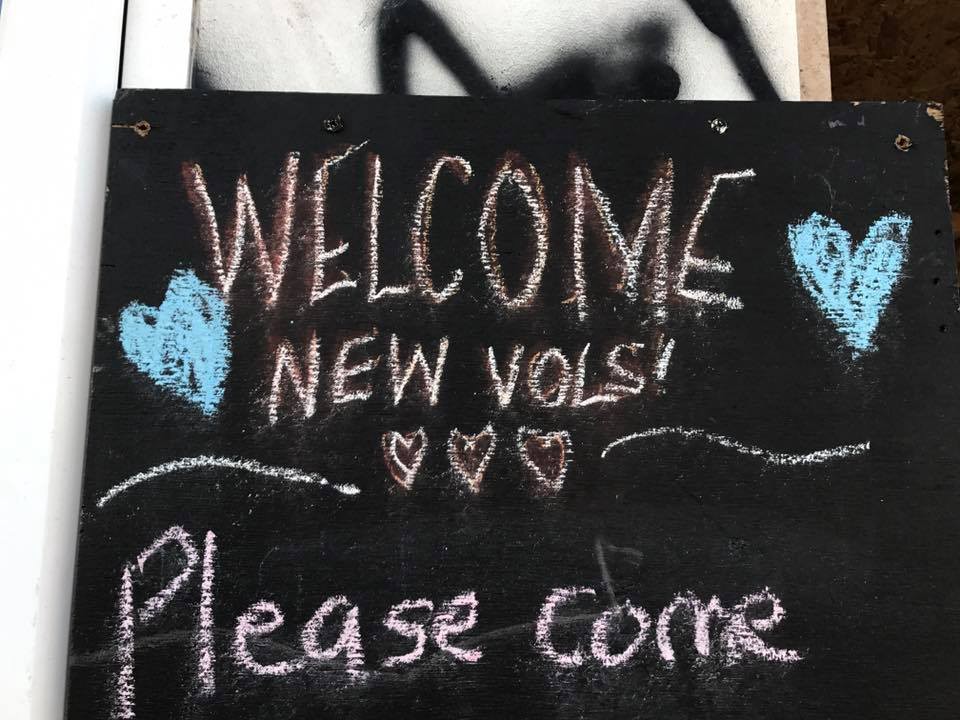 WELCOME
NEW VOLS!
Please come